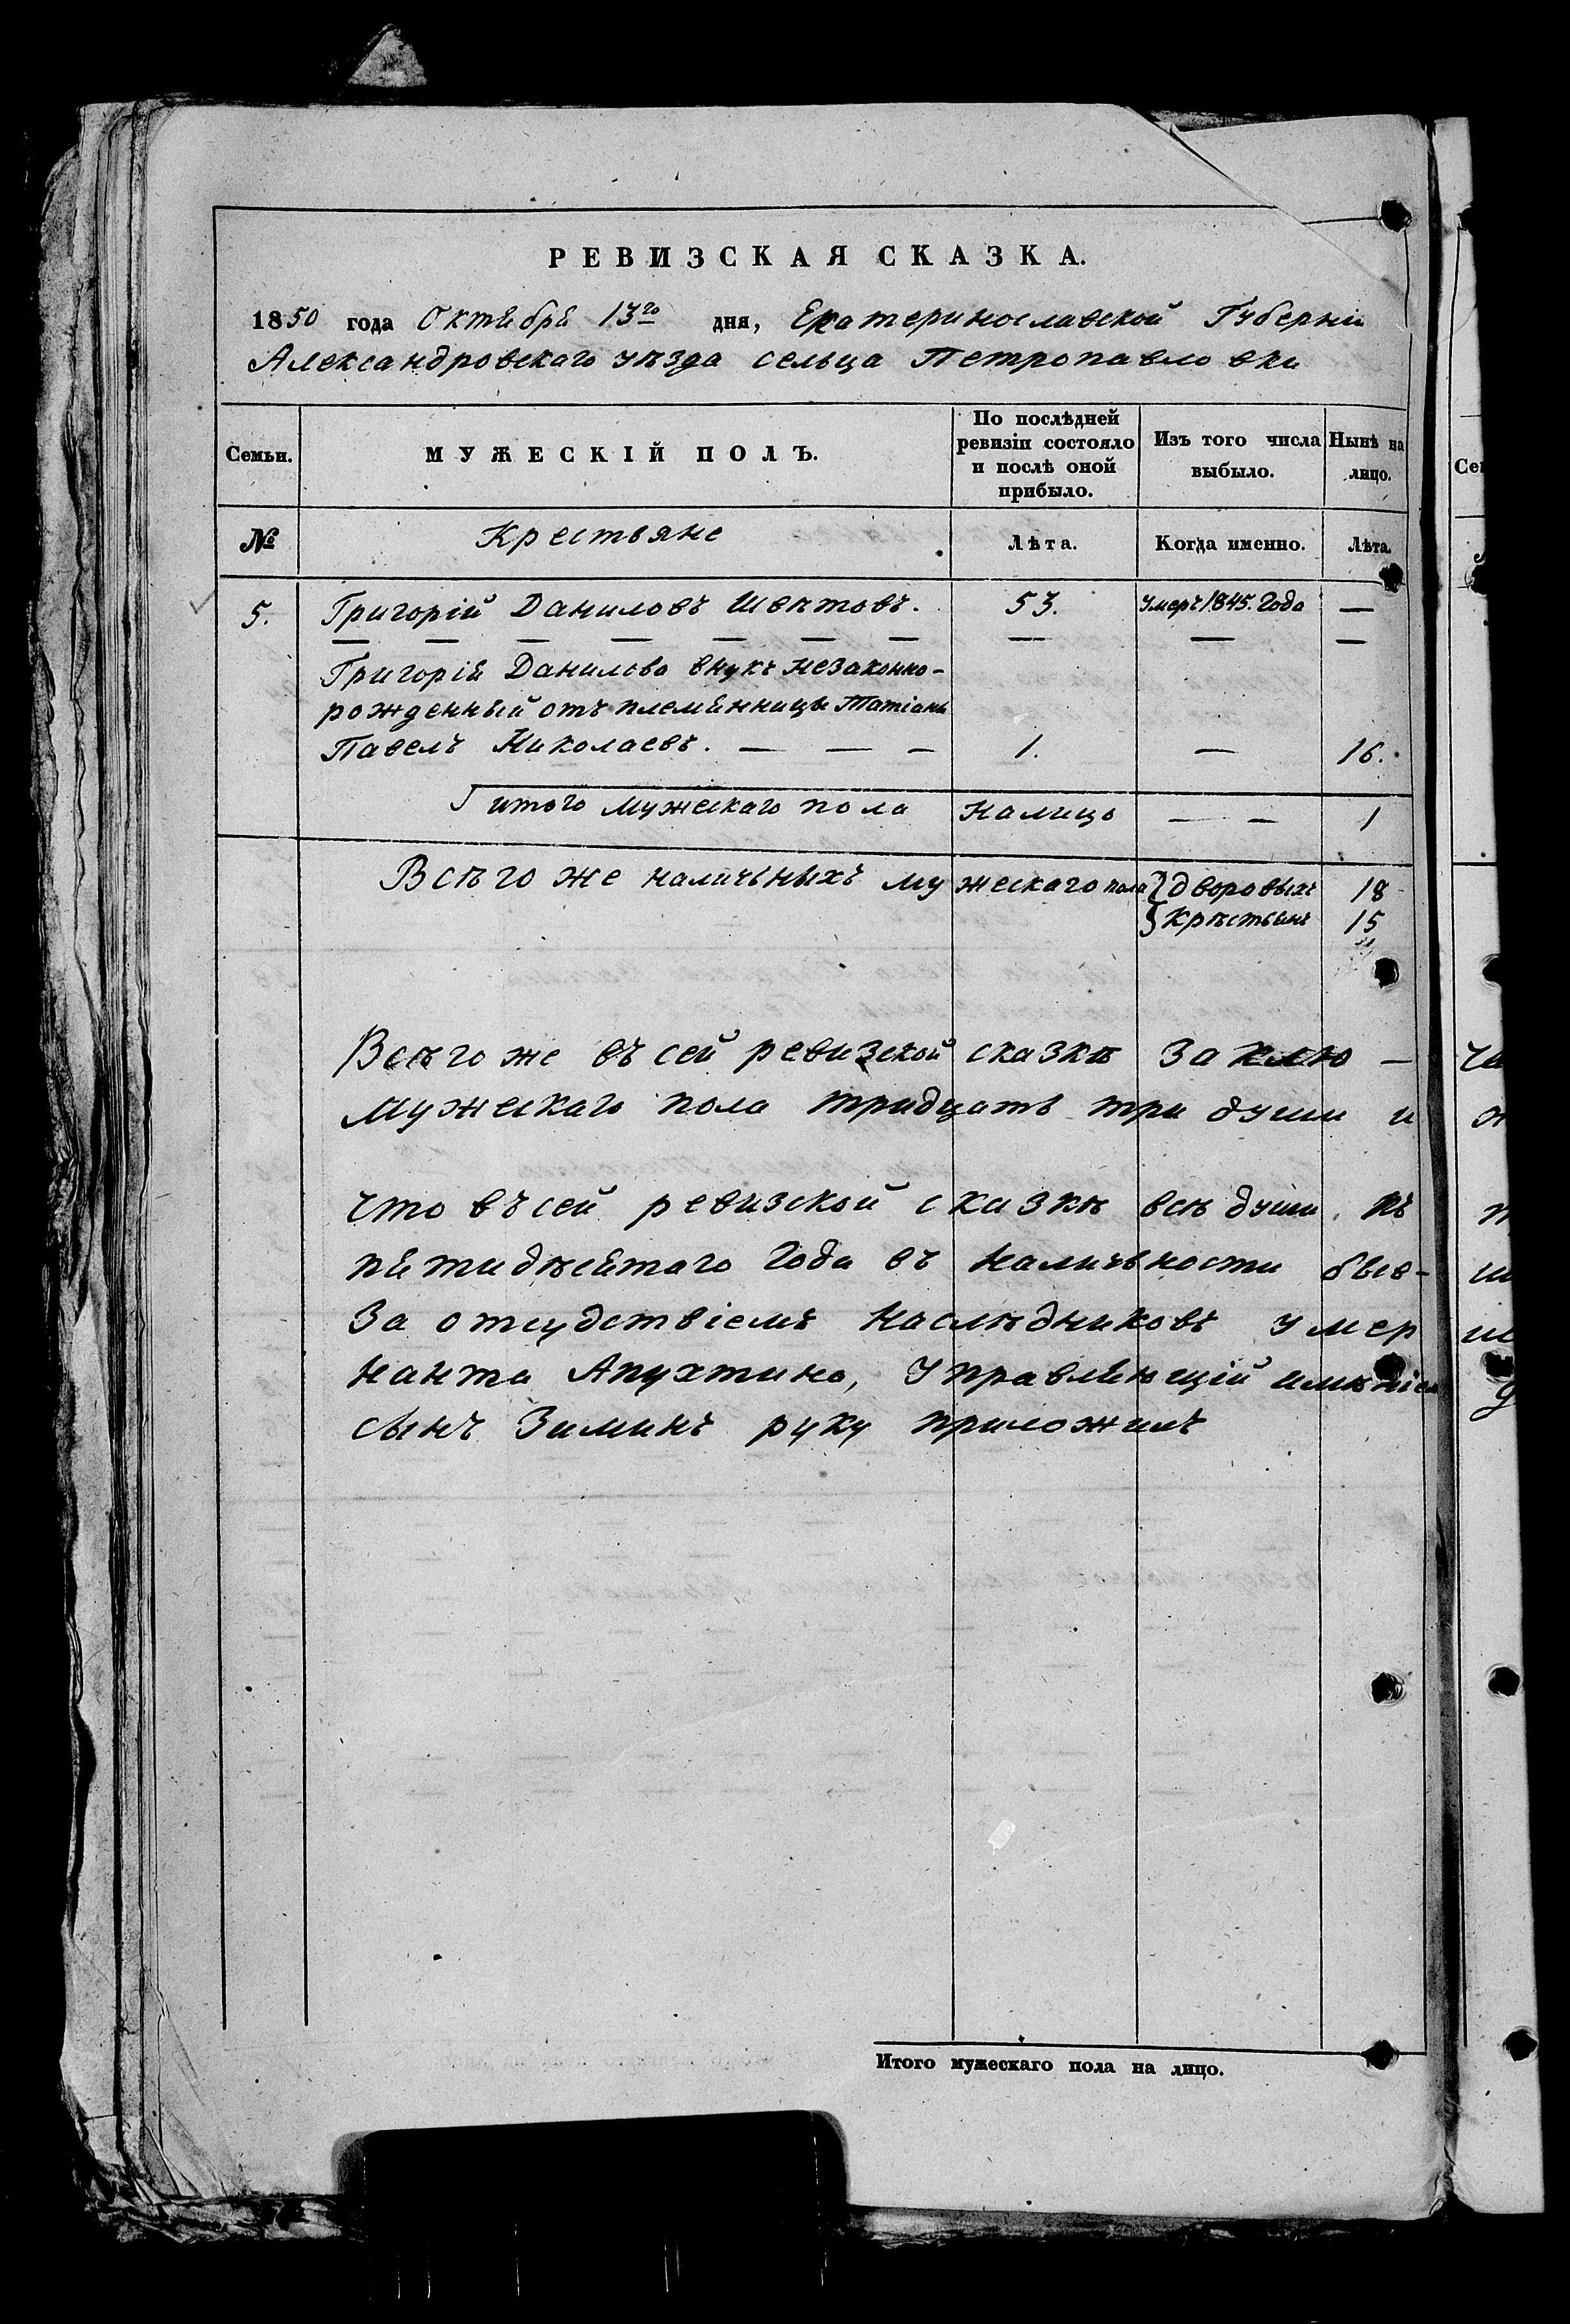 РЕВИЗСКАЯ СКАЗКА.
1850 года Октября 13го дня, Екатеринославской Губерніи
Александровскаго уѣзда сельца Петропавловки
Семьи. МУЖЕСКІЙ ПОЛЪ. По послѣдней ревизіи состояло и послѣ оной прибыло. Изъ того числа выбыло. Нынѣ на лицо.
№ Крестьяне Лѣта. Когда именно. Лѣта.
5. Григорій Даниловъ Шветовъ. 53. Умеръ 1845. Года —
— — — — — — — — — —
Григорія Данилова внукъ незаконно-
рожденный отъ племянницы Татіаны
Павелъ Николаевъ. — — — 1. — 16.
итого мужескаго пола налицо — — 1
Всѣго же наличьныхъ мужескаго пола дворовыхъ 18
крѣстьянъ 15
Всѣго же въ сей ревизской сказкѣ заклю —
мужескаго пола тридцать три души и
что въ сей ревизской сказкѣ всѣ души къ
пятидѣсятаго Года въ наличьности быв-
За отсудствіемъ Наслѣдниковъ умер
нанта Апухтина, Управляющій имѣніем
сынъ Зиминъ руку приложилъ
Итого мужескаго пола на лицо.